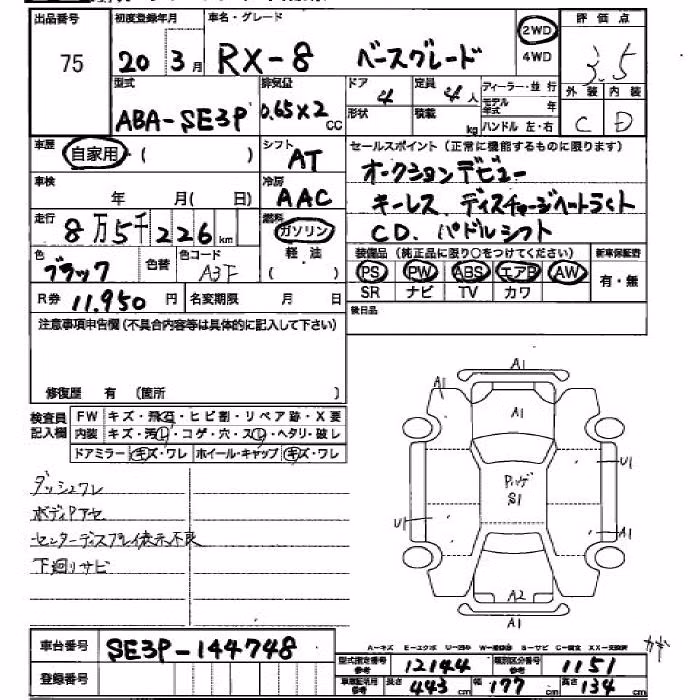 出品番号 初度登録年月 車名・グレード 2WD 評価点
75 20 3月 RX-8 ベースグレード 4WD 3.5
型式 排気量 ドア 定員 ディーラー・並行 外装 内装
ABA-SE3P 0.65×2 CC 4 4人 モデル年式 年 C D
形状 積載 kg ハンドル 左・右
車歴 自家用・( ) シフト AT セールスポイント(正常に機能するものに限ります)
オークションデビュー
車検 年 月(日) 冷房 AAC キーレス ディスチャージヘートライト
走行 8万5千226km 燃料 ガソリン CD. パドルシフト
軽油
( )
色 ブラック 色替 色コード A3F 装備品(純正品に限り○をつけてください) 新車保証書
PS PW ABS エアB AW 有・無
SR ナビ TV カワ
R券 11.950円 名変期限 月 日 後日品
注意事項申告欄(不具合内容等は具体的に記入して下さい)
修復歴 有 (箇所 )
検査員記入欄 FW キズ・飛石・ヒビ割・リペア跡・X要
内装 キズ・汚レ・コゲ・穴・スレ・ヘタリ・破レ
ドアミラー キズ・ワレ ホイール・キャップ キズ・ワレ
ダッシュワレ
ボディPアセ
センターディスプレイ表示不良
下廻りサビ
A1
A1
A1
U1
S1
U1
A1
A2
A1
車台番号 SE3P-144748
A-キズ E-エクボ
登録番号
型式指定番号 参考 12144 類別区分番号 参考 1151
車検証記載 参考 長さ 443cm 幅 177cm 高さ 134cm